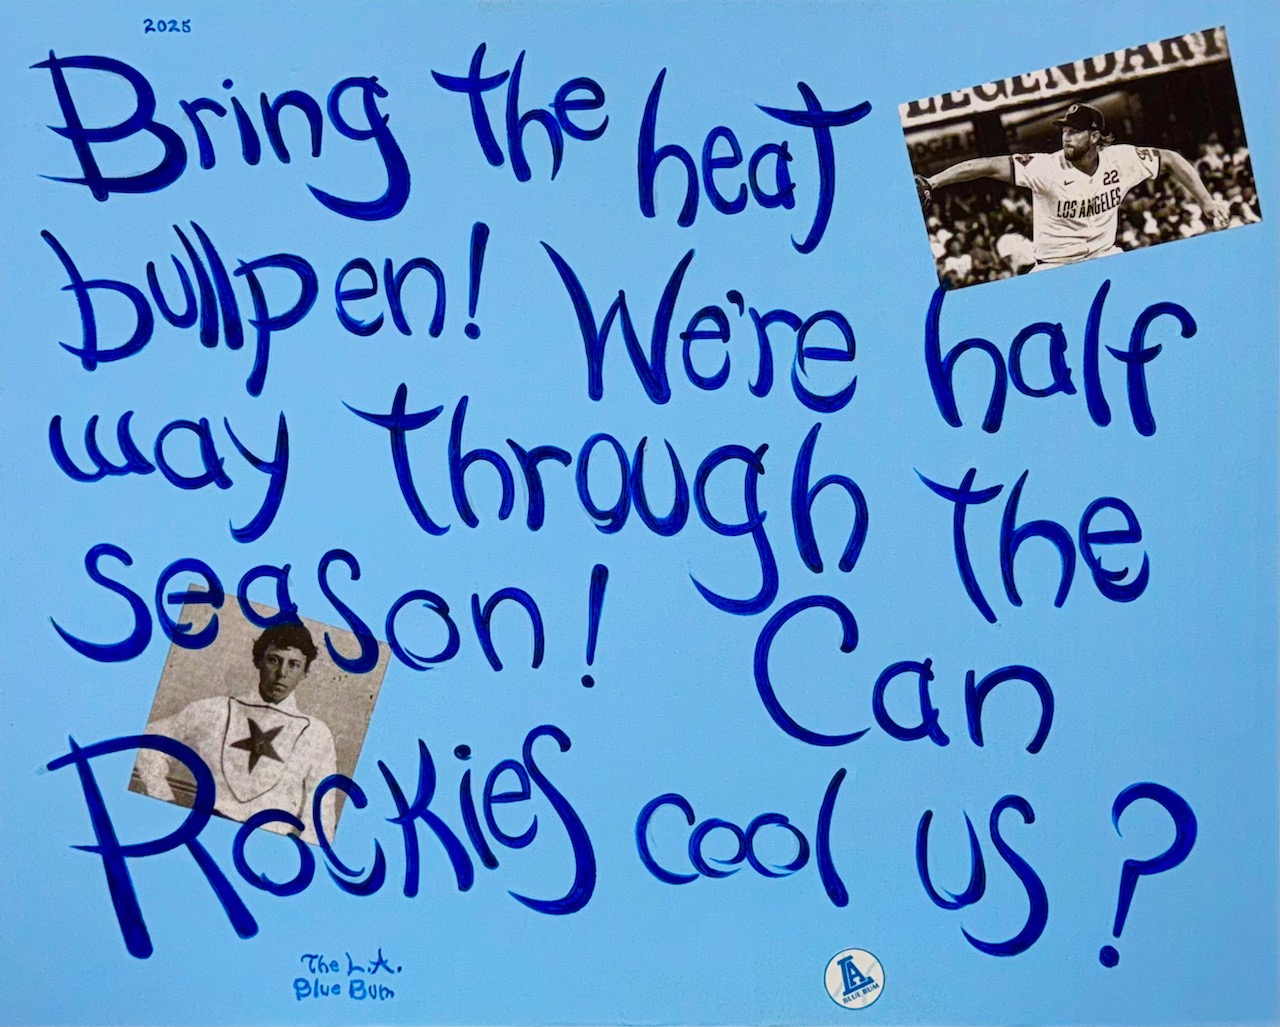 2025
LEGENDARY
22
LOS ANGELES
Bring the heat
bullpen! We're half
way through the
season! Can
Rockies cool us?
The L.A.
Blue Bum
LA
BLUE BUM